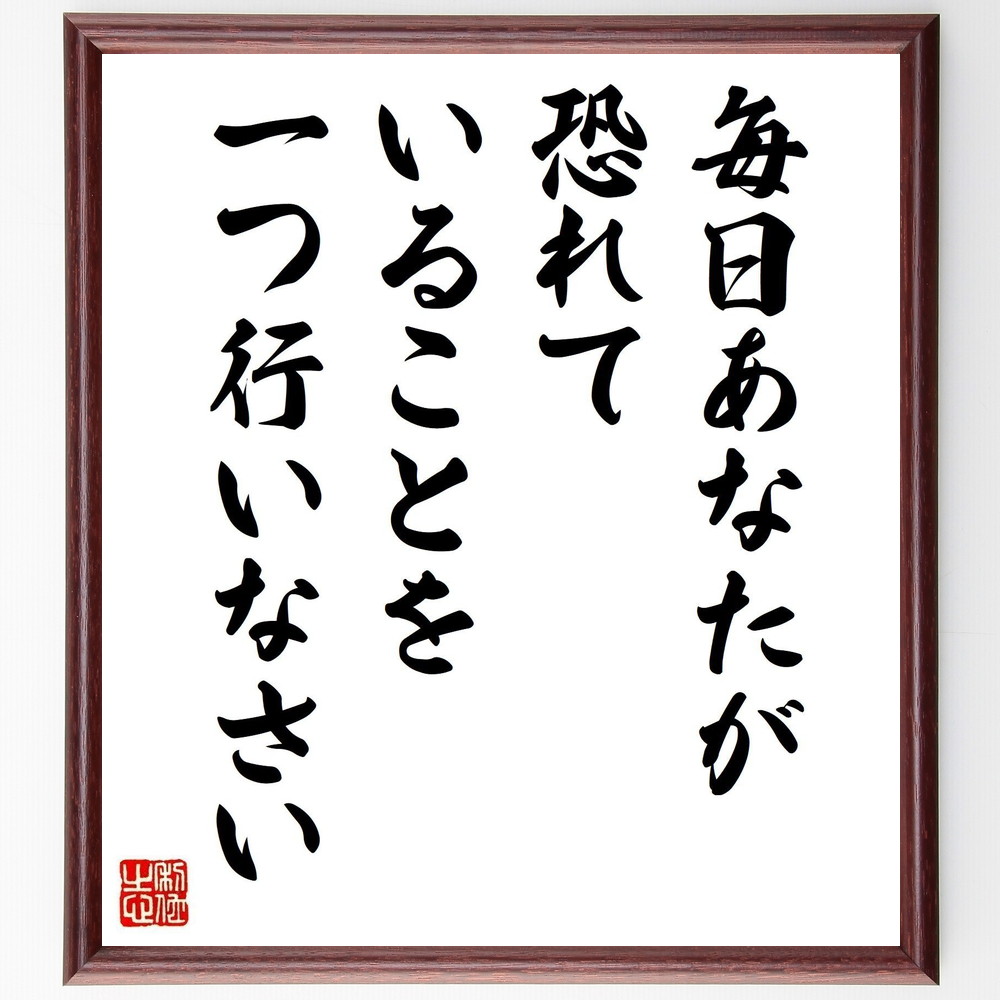 毎日あなたが
恐れて
いることを
一つ行いなさい